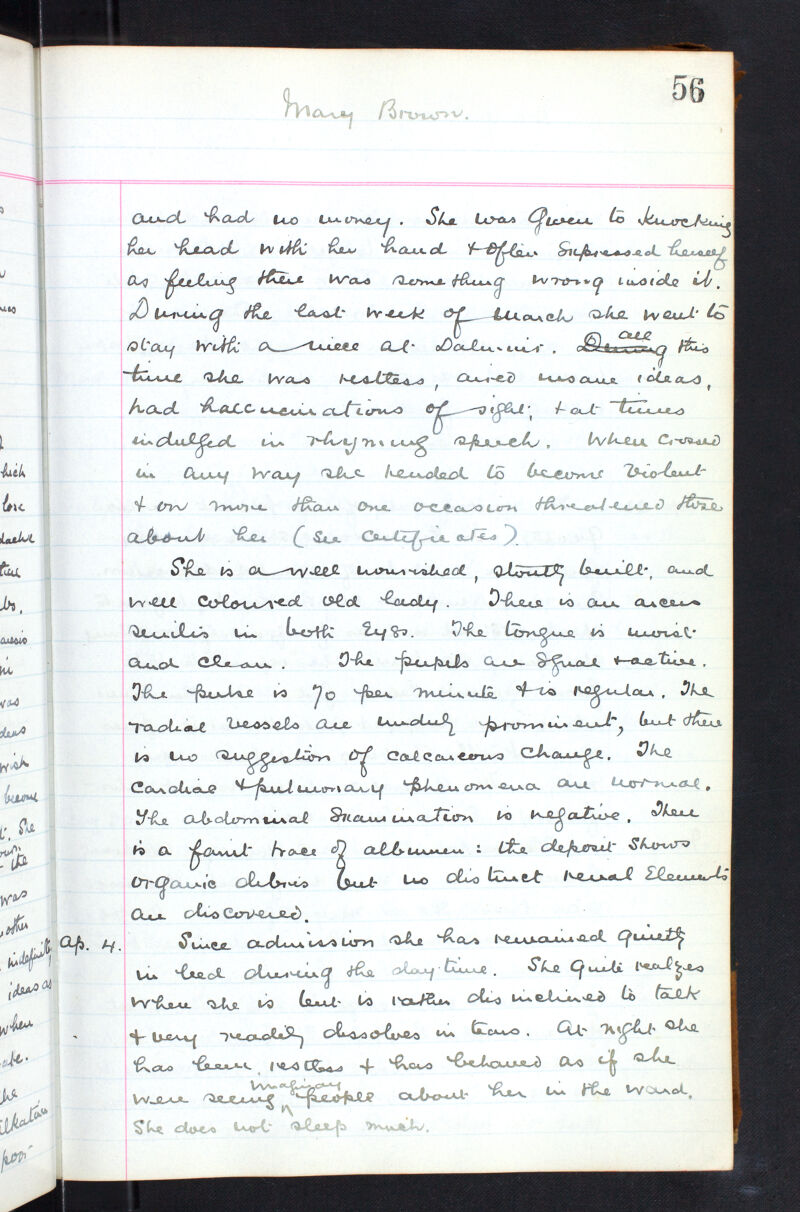 56
Mary Brown.
and had no money. She was given to knocking
her head with her hand & often expressed herself
as feeling there was something wrong inside it.
During the last week of March she went to
stay with a niece at Dalmuir. all this
time she was restless, aired insane ideas,
had hallucinations of sight, & at times
indulged in rhyming speech. When crossed
in any way she tended to become violent
& on more than one occasion threatened those
about her (See Certificates).
She is a well nourished, stoutly built, and
well coloured old lady. There is an arcus
senilis in both Eyes. The tongue is moist
and clean. The pupils are Equal & active.
The pulse is 70 per minute & is regular. The
radial vessels are unduly prominent, but there
is no suggestion of calcareous change. The
Cardiac & pulmonary phenomena are normal.
The abdominal Examination is negative. There
is a faint trace of albumen: the deposit shows
organic debris but no distinct renal Elements
are discovered.
Ap. 4. Since admission she has remained quietly
in bed during the daytime. She quite realizes
where she is but is rather disinclined to talk
& very readily dissolves in tears. At night she
has been restless & has behaved as if she
were seeing imaginary people about her in the ward.
She does not sleep much.